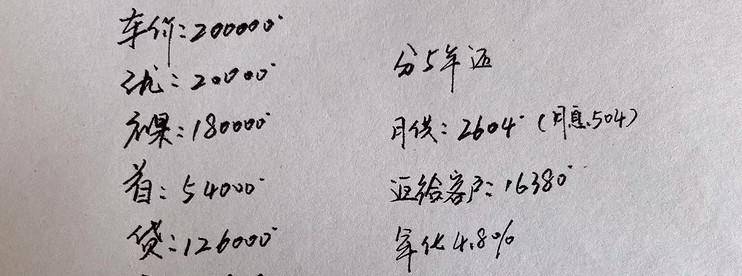 车价:200000
优:20000
裸:180000
首:54000
贷:126000
分5年还
月供:2604 (月息504)
返给客户:16380
年化4.8%